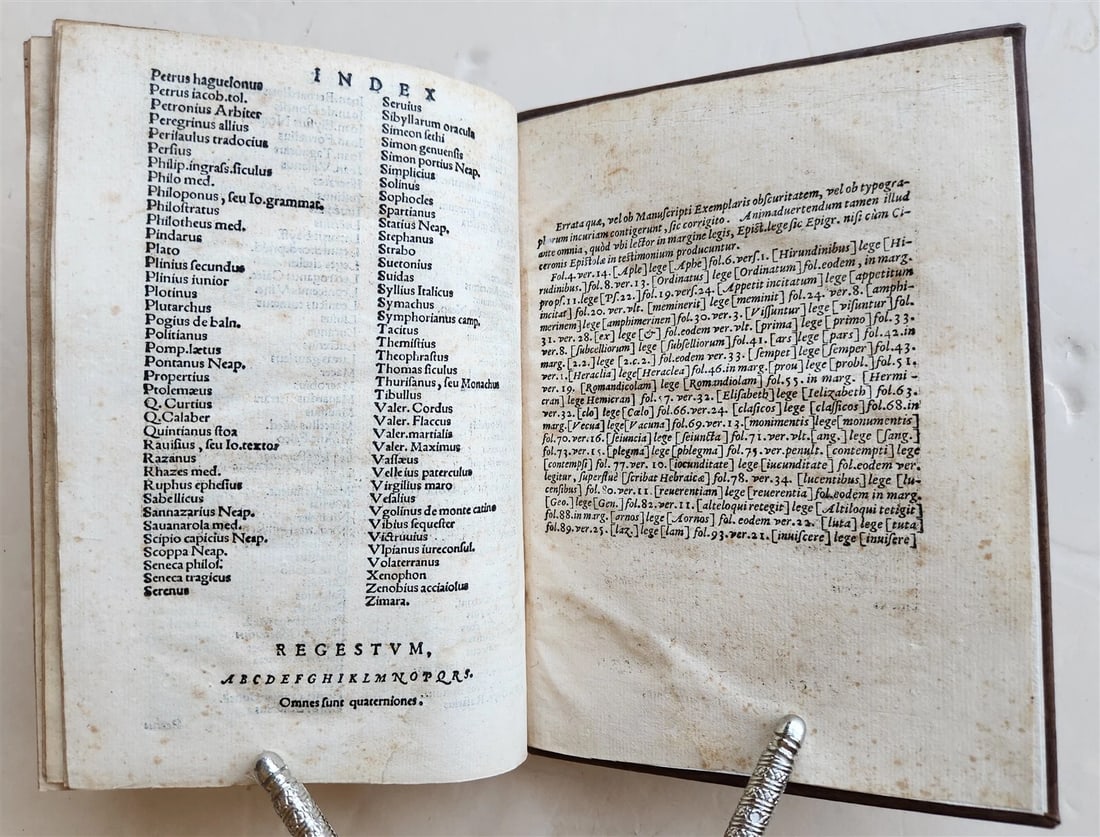 INDEX
Petrus haguelonus
Petrus iacob.tol.
Petronius Arbiter
Peregrinus allius
Perilaulus tradocius
Persius
Philip.ingras.siculus
Philo med.
Philoponus, seu Io.grammat.
Philostratus
Philotheus med.
Pindarus
Plato
Plinius secundus
Plinius iunior
Plotinus
Plutarchus
Pogius de baln.
Politianus
Pomp.lætus
Pontanus Neap.
Propertius
Ptolemæus
Q. Curtius
Q. Calaber
Quintianus stoa
Rauisius, seu Io.textor
Razanus
Rhazes med.
Ruphus ephesius
Sabellicus
Sannazarius Neap.
Sauanarola med.
Scipio capicius Neap.
Scoppa Neap.
Seneca philos.
Seneca tragicus
Serenus
Seruius
Sibyllarum oracula
Simeon sethi
Simon genuensis
Simon portius Neap.
Simplicius
Solinus
Sophocles
Spartianus
Statius Neap.
Stephanus
Strabo
Suetonius
Suidas
Syllius Italicus
Symachus
Symphorianus camp.
Tacitus
Themistius
Theophrastus
Thomas siculus
Thurisanus, seu Monachus
Tibullus
Valer. Cordus
Valer. Flaccus
Valer.martialis
Valer. Maximus
Vassæus
Velleius paterculus
Virgilius maro
Vesalius
Vgolinus de monte catino
Vibius sequester
Victruuius
Vlpianus iureconsul.
Volaterranus
Xenophon
Zenobius acciaiolus
Zimara.
REGESTVM,
ABCDEFGHIKLMNOPQRS.
Omnes sunt quaterniones.
Errata quæ, vel ob Manuscripti Exemplaris obscuritatem, vel ob typogra-
phorum incuriam contigerunt, sic corrigito. Animaduertendum tamen illud
ante omnia, quòd vbi lector in margine legis, Epist.lege sic Epigr. nisi cùm Ci-
ceronis Epistolæ in testimonium producuntur.
Fol.4.ver.14. [Aple] lege [Aphe] fol.6.vers.1. [Hirundinibus] lege [Hi-
rudinibus.] fol.8.ver.13. [Ordinatus] lege [Ordinatum] fol.eodem, in marg.
prop s.11.lege [Ps.22.] fol.19.vers.24. [Appetit incitatum] lege [appetitum
incitat] fol.20. ver.vlt. [meminerit] lege [meminit] fol.24. ver.8. [amphi-
merinem] lege [amphimerinen] fol.30.ver.3. [Vissuntur] lege [visuntur] fol.
31. ver.28. [ex] lege [&] fol.eodem ver.vlt. [prima] lege [primo] fol.33.
ver.8. [subcelliorum] lege [subselliorum] fol.41. [ars] lege [pars] fol.42.in
marg. [2.2.] lege [2.5.2.] fol.eodem ver.33. [semper] lege [semper] fol.43.
ver.1. [Heraclia] lege [Heraclea] fol.46.in marg. [prou] lege [probl.] fol.51.
ver.19. [Romandicolam] lege [Romandiolam] fol.55. in marg. [Hermi-
cran] lege Hemicran] fol.57. ver.32. [Elisabeth] lege [Ielizabeth] fol.63.
ver.32. [clo] lege [Cœlo] fol.66.ver.24. [clasicos] lege [classicos] fol.68.in
marg. [Vecua] lege [Vacuna] fol.69.ver.13. [monimentis] lege [monumentis]
fol.70.ver.16. [seiuncia] lege [seiuncta] fol.71.ver.vlt. [ang.] lege [sang.]
fol.73.ver.15. [plegma] lege [phlegma] fol.75.ver.penult. [contempti] lege
[contempsi] fol. 77. ver. 10. [iocunditate] lege [iucunditate] fol.eodem ver.
legitur, superflue [scribat Hebraicæ] fol.78. ver.34. [lucentibus] lege [lu-
censibus] fol.80.ver.11 [reuerentiam] lege [reuerentia] fol.eodem in marg.
[Geo.] lege [Gen.] fol.82.ver.11. [alteloqui retegit] lege [Altiloqui tetigit]
fol.88.in marg. [arnos] lege [Aornos] fol. eodem ver.22. [luta] lege [tuta]
fol.89.ver.25. [laz.] lege [lam] fol.93.ver.21. [inuiscere] lege [inuisere]